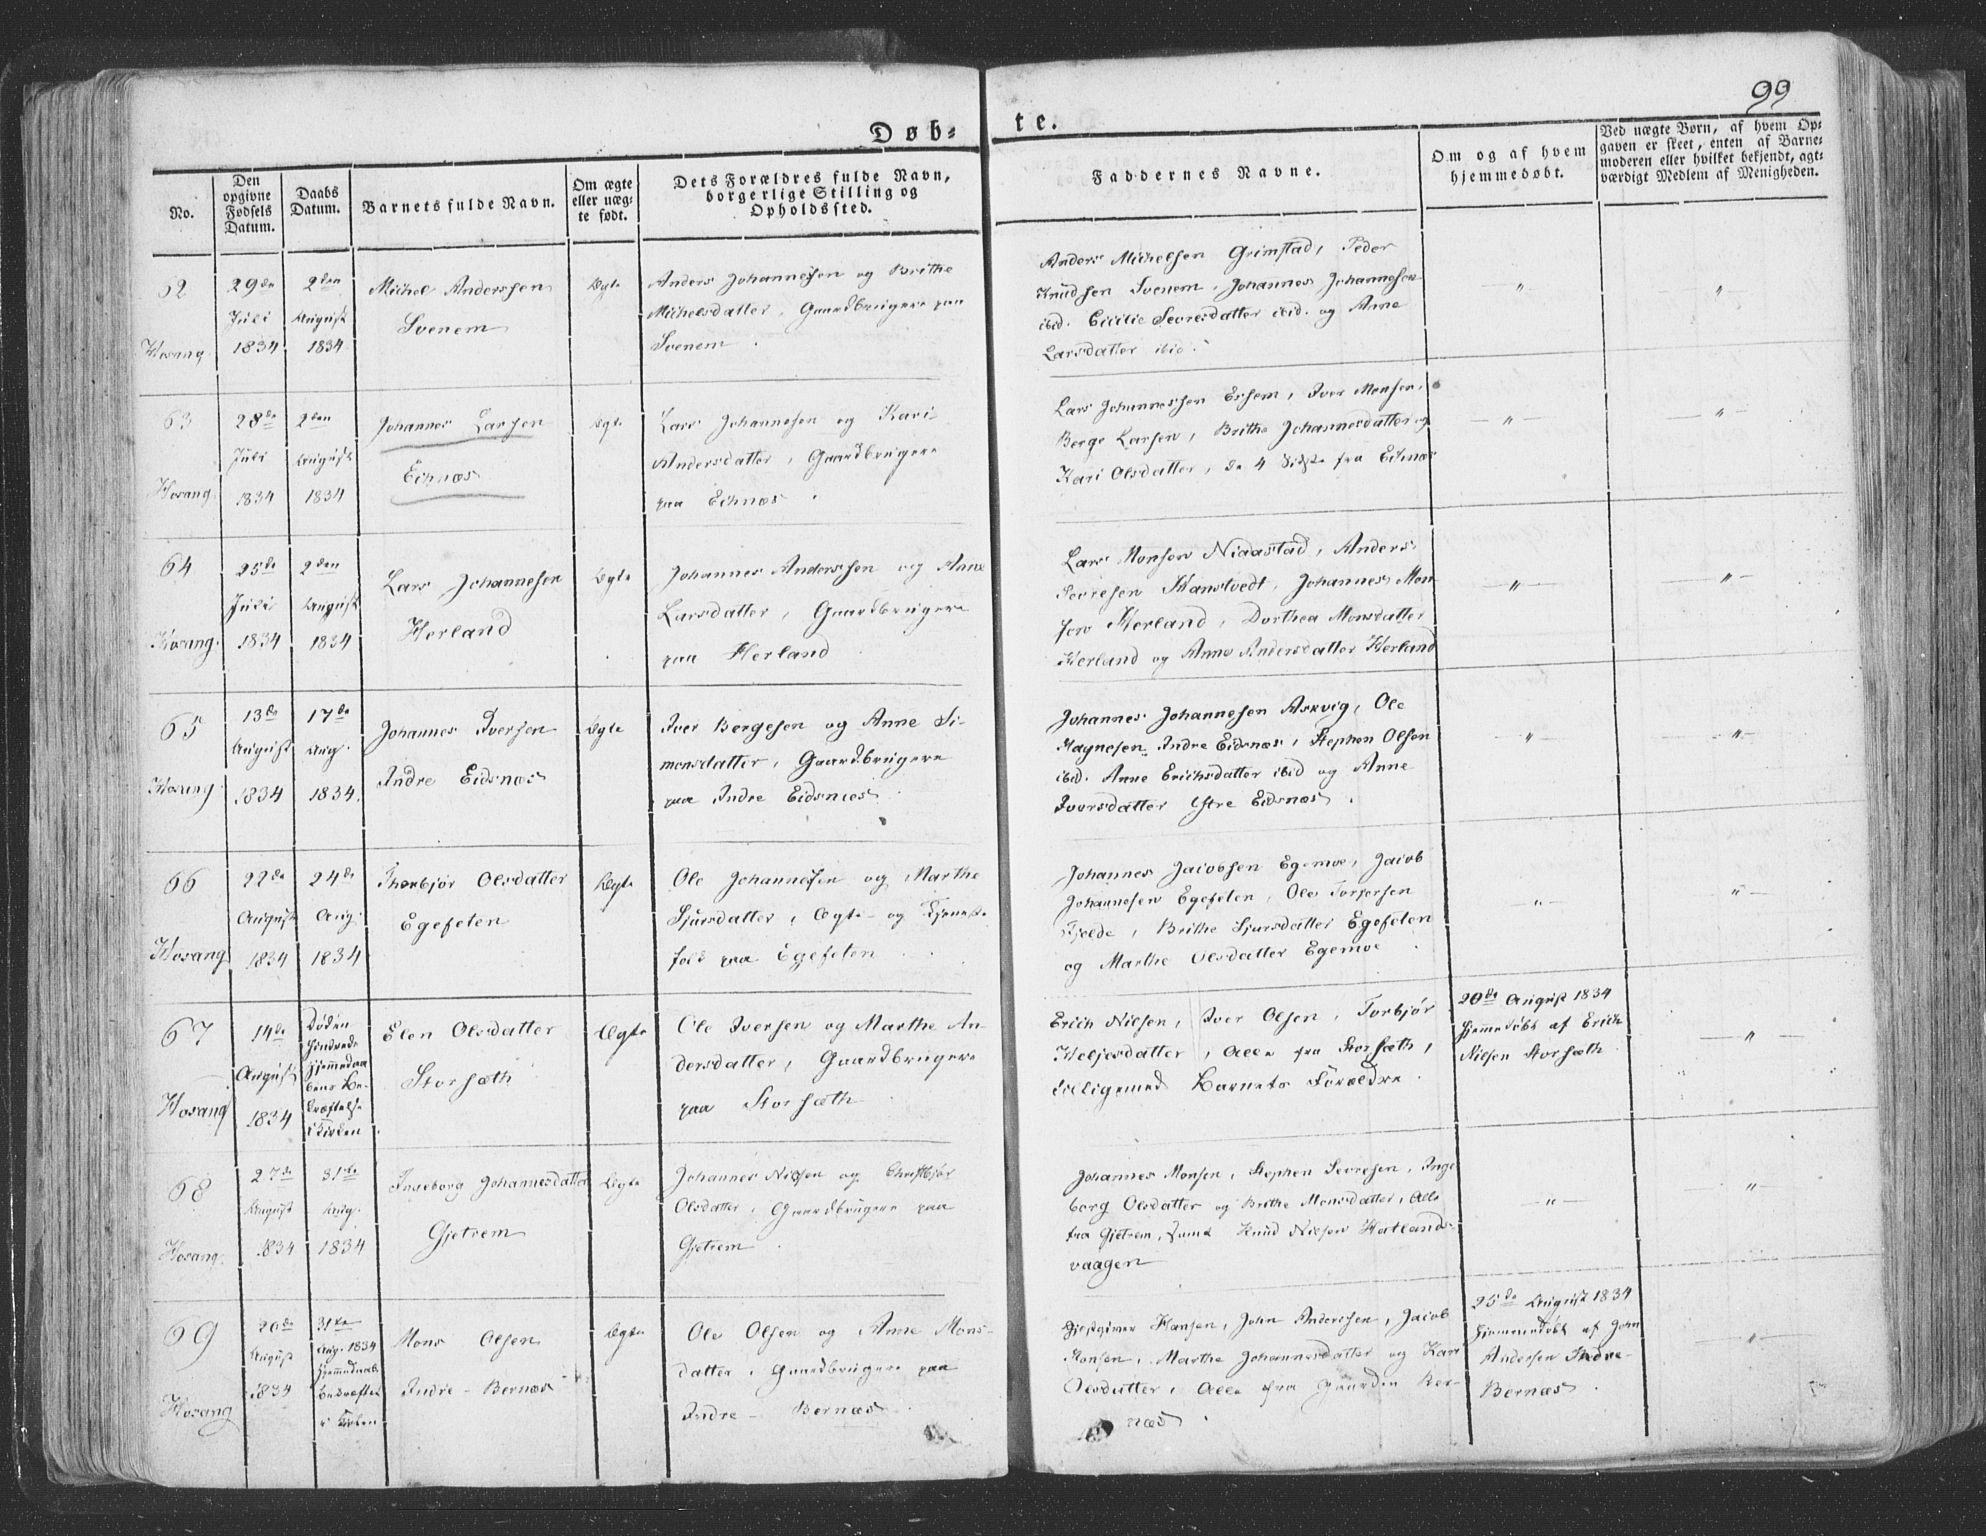 99
Døb-
te.
No.
Den
opgivne
Fødsels
Datum.
Daabs
Datum.
Barnets fulde Navn.
Om ægte
eller uæg-
te født.
Dets Forældres fulde Navn,
borgerlige Stilling og
Opholdssted.
Faddernes Navne.
Om og af hvem
hjemmedøbt.
Ved uægte Børn, af hvem Op-
gaven er skeet, enten af Barne-
moderen eller hvilket bekjendt, agt-
værdigt Medlem af Menigheden.
62
Hosang.
29de
Juli
1834
2den
August
1834
Michel Anderssen
Svenem
Ægte
Anders Johannessen og Brithe
Michelsdatter, Gaardbrugere paa
Svenem.
Anders Michelsen Grimstad, Peder
Knudsen Svenem, Johannes Johannesen
ibid. Cicilie Sevresdatter ibid. og Anne
Larsdatter ibid.
"
"
63
Hosang.
28de
Juli
1834
2den
August
1834
Johannes Larsen
Eidnæs
Ægte
Lars Johannesen og Kari
Andersdatter, Gaardbrugere
paa Eidnæs.
Lars Johannessen Eshem, Iver Monsen,
Berge Larsen, Brithe Johannesdatter og
Kari Olsdatter, de 4 sidste fra Eidnæs
"
"
64
Hosang.
25de
Juli
1834
2den
August
1834
Lars Johannesen
Herland
Ægte
Johannes Anderssen og Anne
Larsdatter, Gaardbrugere
paa Herland.
Lars Monsen Niaastad, Anders
Sevresen Hanstvedt, Johannes Mon
sen Herland, Dorthea Monsdatter
Herland og Anne Andersdatter Herland
"
"
65
Hosang
13de
August
1834
17de
Aug.
1834.
Johannes Iversen
Indre Eidsnæs
Ægte
Iver Bergesen og Anne Si-
monsdatter, Gaardbrugere
paa Indre Eidsnæs.
Johannes Johannesen Askvig, Ole
Magnesen Indre Eidsnæs, Stephen Olsen
ibid. Anne Erichsdatter ibid og Anne
Iversdatter Ystre Eidsnæs.
"
"
66
Hosang
22de
August
1834
24de
Aug.
1834
Thorbjør Olsdatter
Egefeten
Ægte
Ole Johannessen og Marthe
Sjursdatter, Ægte- og Tjeneste
folk paa Egefeten.
Johannes Jacobsen Egemoe, Jacob
Johannesen Egefeten, Ole Torgersen
Fjelde, Brithe Sjursdatter Egefeten
og Marthe Olsdatter Egemoe.
"
"
67
Hosang
14de
August
1834
Døden
hindrede
hjemmedaa
bens Be-
kræftelse
i Kirken
Elen Olsdatter
Storsæth
Ægte
Ole Iversen og Marthe An-
dersdatter, Gaardbrugere
paa Storsæth.
Erich Nilsen, Iver Olsen, Torbjør
Heljesdatter, Alle fra Storsæth,
tilligemed Barnets Forældre.
20de August 1834
hjemmedøbt af Erich
Nielsen Storsæth.
"
68
Hosang.
27de
August
1834
31te
Aug.
1834
Ingeborg Johannesdatter
Gjetrem
Ægte
Johannes Nilssen og Christbjør
Olsdatter, Gaardbrugere paa
Gjetrem.
Johannes Monsen, Stephen Sevresen, Inge
borg Olsdatter og Brithe Monsdatter, Alle
fra Gjetrem, samt Knud Nielsen Hatlands-
vaagen
"
"
69
Hosang
20de
August
1834
31te
Aug. 1834
hjemmedaab
bekræftet
i Kirken
Mons Olsen
Indre-Bernæs
Ægte
Ole Olsen og Anne Mons-
datter, Gaardbrugere paa
Indre-Bernæs.
Gjestgiver Hansen, John Anderssen, Jacob
Monsen, Marthe Johannesdatter og Kari
Olsdatter, Alle fra Gaarden Ber-
næs.
25de August 1834
hjemmedøbt af John
Andersen Indre-
Bernæs.
"